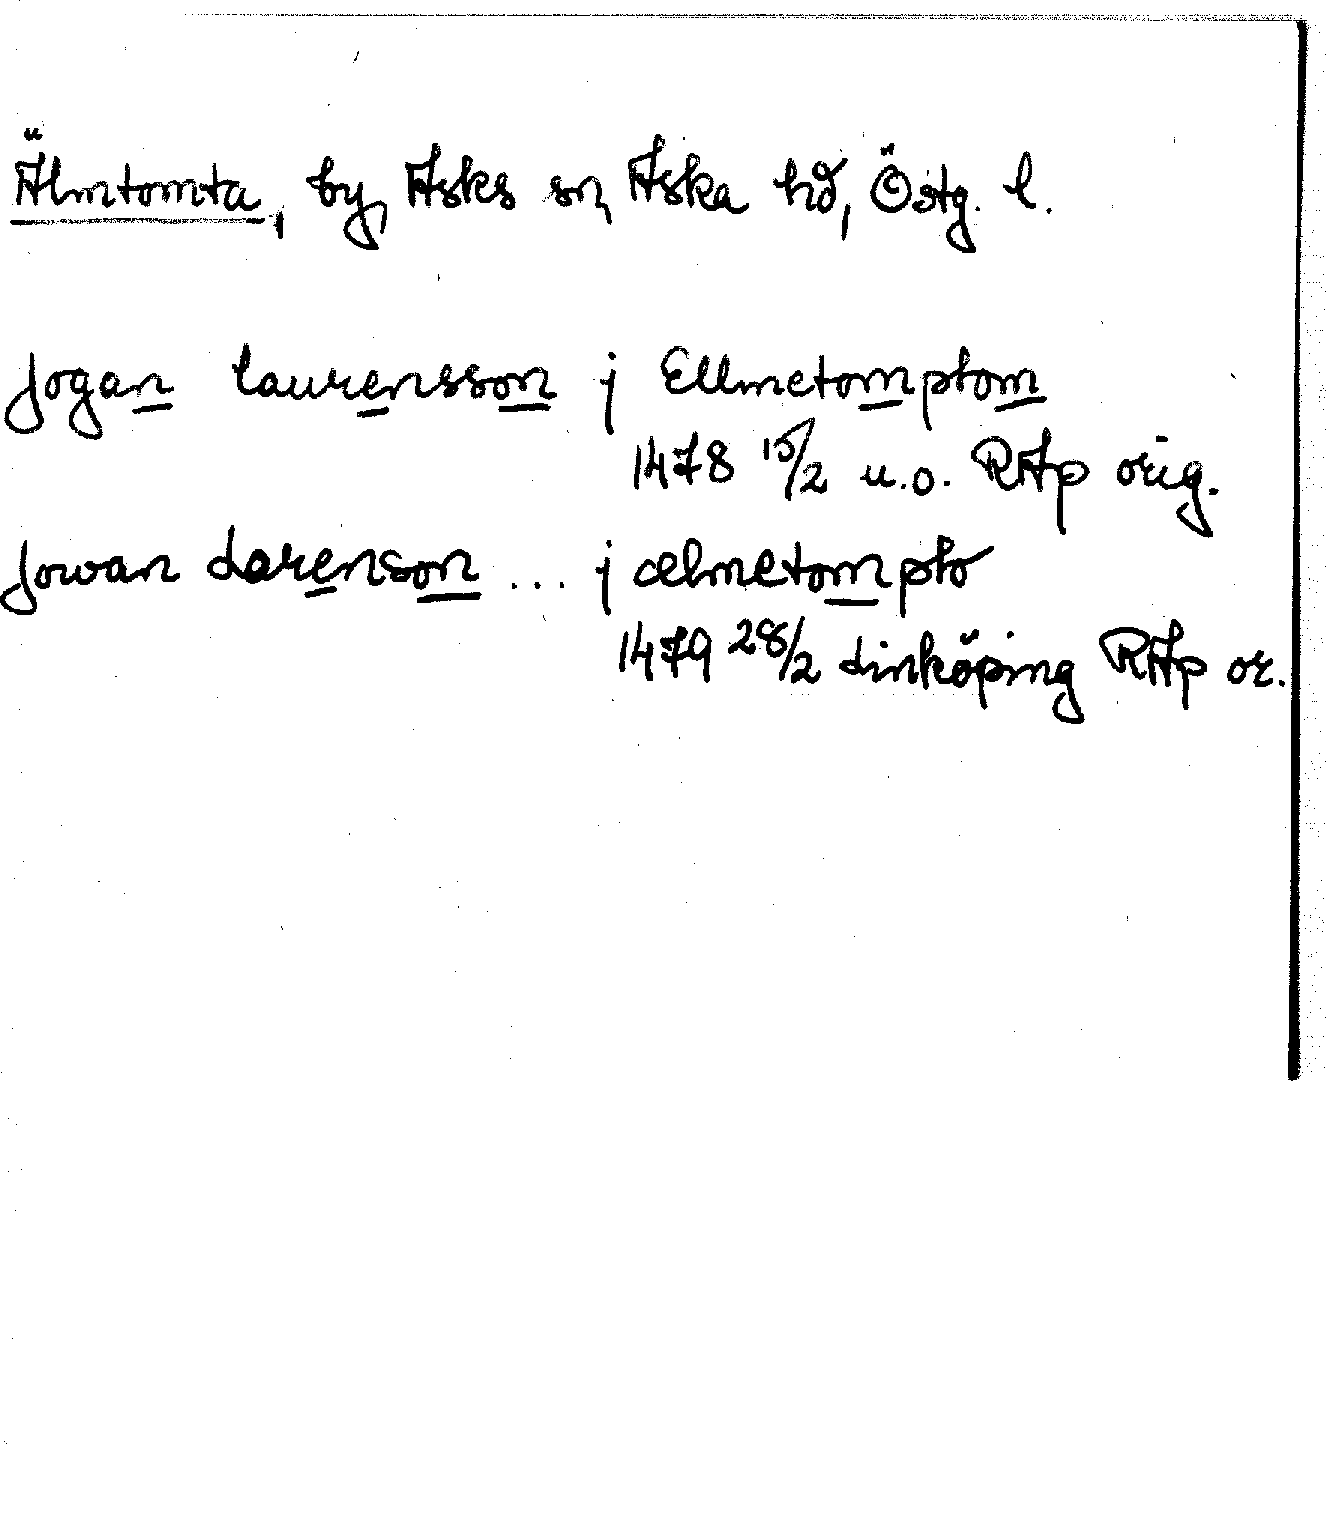 Älmtomta, by, Asks sn, Aska hd, Östg. l.
Jogan laurensson j Ellmetomptom
1478 15/2 u.o. RAp orig.
Jowan Larenson ... j ælmetompto
1479 28/2 Linköping RAp or.